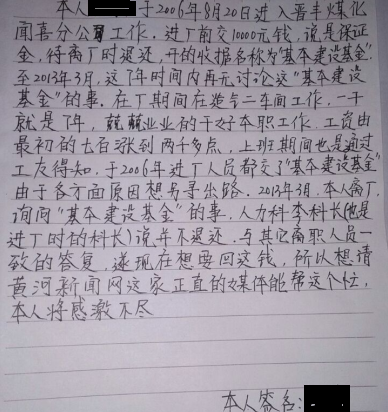 本人于2006年8月20日进入晋丰煤化
闻喜分公司工作。进厂前交10000元钱，说是保证
金，待离厂时退还，开的收据名称为“基本建设基金”。
至2013年3月，这7年时间内再无讨论这“基本建设
基金”的事。在厂期间在造气二车间工作，一干
就是7年，兢兢业业的干好本职工作，工资由
最初的七百涨到两千多点，上班期间也是通过
工友得知，于2006年进厂人员都交了“基本建设基金”
由于各方面原因想另寻出路。2013年3月，本人离厂，
询问“基本建设基金”的事，人力科李科长（他是
进厂时的科长）说并不退还，与其它离职人员一
致的答复，遂现在想要回这钱，所以想请
黄河新闻网这家正直的媒体能帮这个忙，
本人将感激不尽
本人签名：